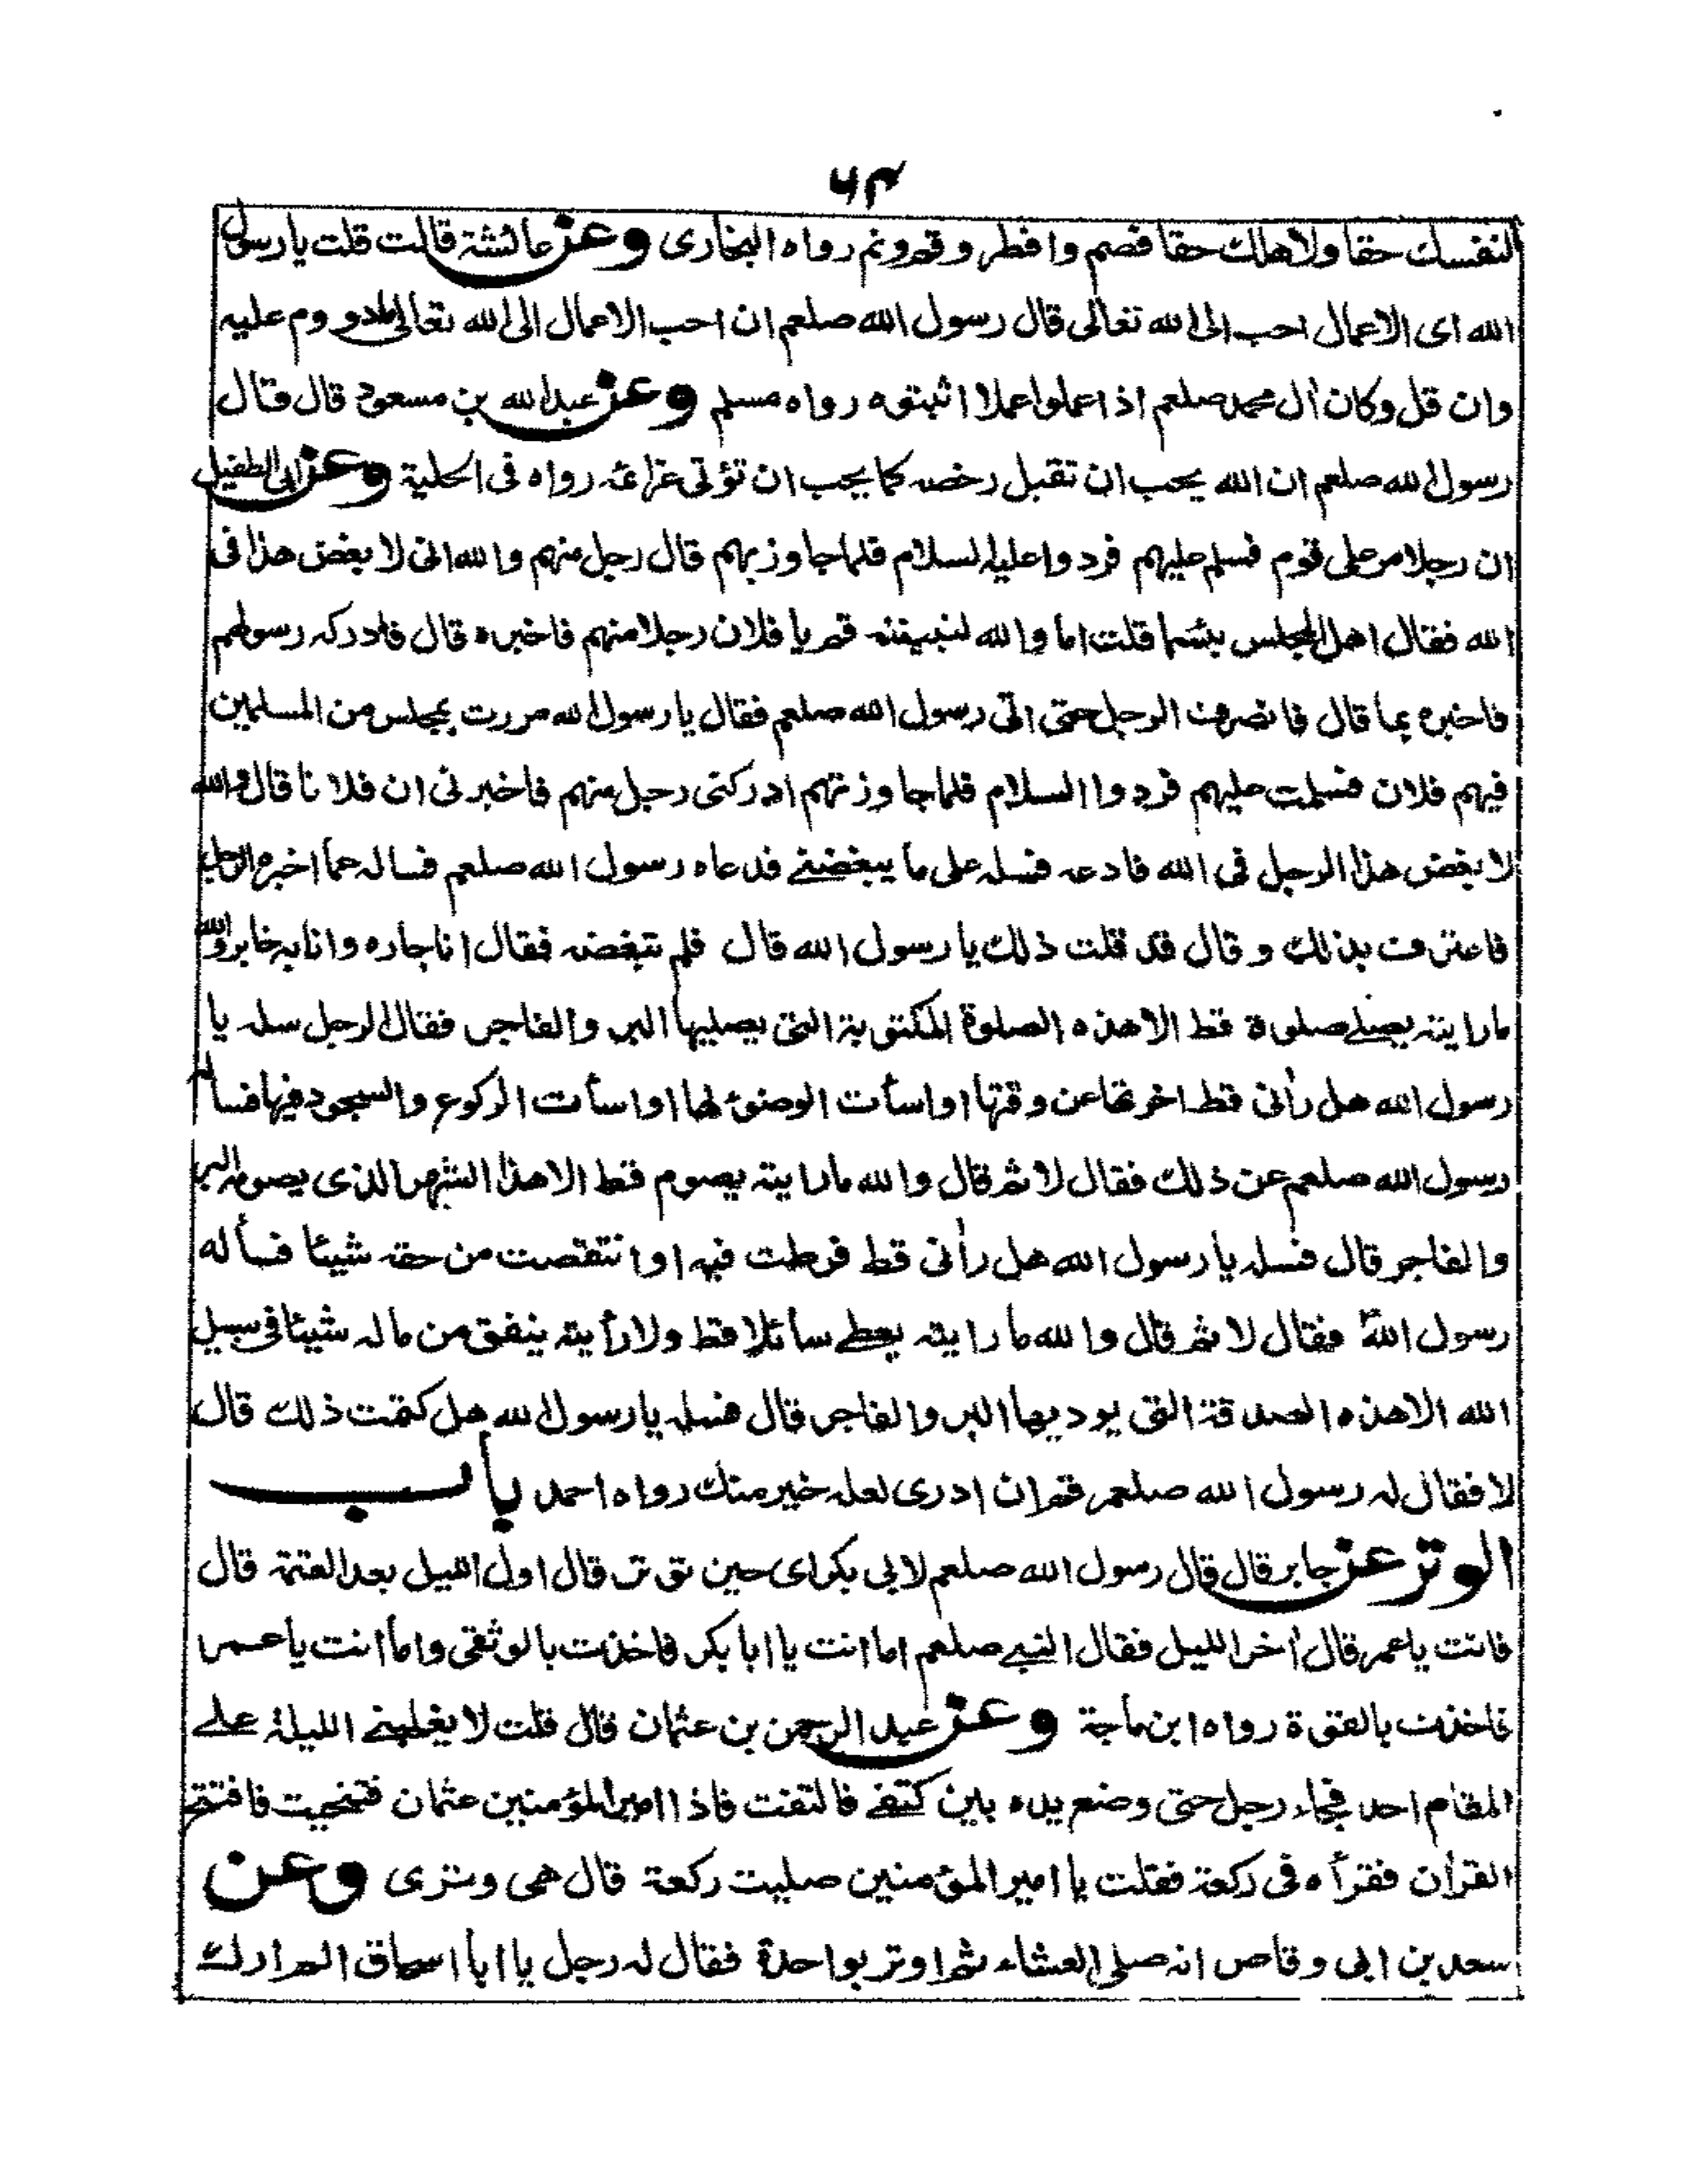 ٦٤
لنفسك حقا ولاهلك حقا فصم وافطر وقم ونم رواه البخارى وعن عائشة قالت قلت يا رسول
الله اى الاعمال احب الى الله تعالى قال رسول الله صلعم ان احب الاعمال الى الله تعالى ما دووم عليه
وان قل وكان أل محمد صلعم اذا عملوا عملا اثبتوه رواه مسلم وعن عبد الله بن مسعود قال قال
رسول الله صلعم ان الله يحب ان تقبل رخصه كما يحب ان تؤتى عزائمه رواه فى الحلية وعن ابى الطفيل
ان رجلا مر على قوم فسلم عليهم فردوا عليه السلام فلما جاوز بهم قال رجل منهم والله انى لا بغض هذا فى
الله فقال اهل المجلس بئسما قلت اما والله لننبئنه قم يا فلان رجلا منهم فاخبره قال فادركه رسولهم
فاخبره بما قال فانصرف الرجل حتى اتى رسول الله صلعم فقال يا رسول الله مررت بمجلس من المسلمين
فيهم فلان فسلمت عليهم فردوا السلام فلما جاوزتهم ادركنى رجل منهم فاخبرنى ان فلانا قال والله
لا بغض هذا الرجل فى الله فادعه فسله على ما يبغضنے فدعاه رسول الله صلعم فساله عما اخبره الرجل
فاعترف بذلك وقال قد قلت ذلك يا رسول الله قال فلم تبغضه فقال انا جاره وانا به خابر والله
ما رايته يصلے صلوة قط الا هذه الصلوة المكتوبة التى يصليها البر والفاجر فقال الرجل سله يا
رسول الله هل رأنى قط اخرتها عن وقتها او اسأت الوضوء لها او اسأت الركوع والسجود فيها فساله
رسول الله صلعم عن ذلك فقال لا ثم قال والله ما رايته يصوم قط الا هذا الشهر الذى يصومه البر
والفاجر قال فسله يا رسول الله هل رأنى قط فرطت فيه او انتقصت من حقه شيئا فسأله
رسول الله فقال لا ثم قال والله ما رايته يعطے سائلا قط ولا رأيته ينفق من ماله شيئا فى سبيل
الله الا هذه الصدقة التى يوديها البر والفاجر قال فسله يا رسول الله هل كتمت ذلك قال
لا فقال له رسول الله صلعم قم ان ادرى لعله خير منك رواه احمد باب
الوتر عن جابر قال قال رسول الله صلعم لابى بكر اى حين توتر قال اول الليل بعد العتمة قال
فانت يا عمر قال أخر الليل فقال النبے صلعم اما انت يا ابا بكر فاخذت بالوثقى واما انت يا عمر
فاخذت بالقوة رواه ابن ماجة وعن عبد الرحمن بن عثمان قال قلت لا يغلبنے الليلة علے
المقام احد فجاء رجل حتى وضع يده بين كتفے فالتفت فاذا امير المؤمنين عثمان فتنحيت فافتتح
القرأن فقرأه فى ركعة فقلت يا امير المؤمنين صليت ركعة قال هى وترى وعن
سعد بن ابى وقاص انه صلى العشاء ثم اوتر بواحدة فقال له رجل يا ابا اسحاق الم ارك